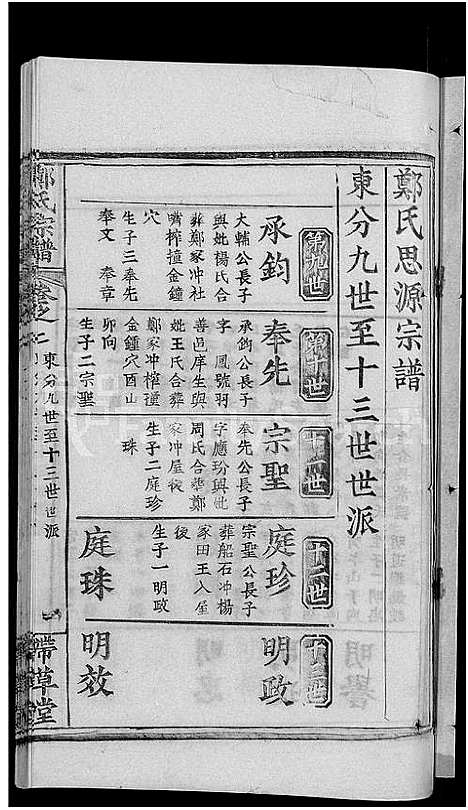 鄭氏思源宗譜
東分九世至十三世世派
第九世
承鈞
大輔公長子
與妣楊氏合
葬鄭家冲社
嘴榨撞金鐘
穴
生子三奉先
奉文 奉章
第十世
奉先
承鈞公長子
字鳳號羽
善邑庠生與
妣王氏合葬
鄭家冲榨撞
金鐘穴酉山
卯向
生子二宗聖
十一世
宗聖
奉先公長子
字應玢與妣
周氏合葬鄭
家冲屋後
生子二庭珍
珠
十二世
庭珍
宗聖公長子
葬船石冲楊
家田王入屋
後
生子一明政
庭珠
十三世
明政
明效
鄭氏宗譜
卷之二
東分九世至十三世世派
帶草堂